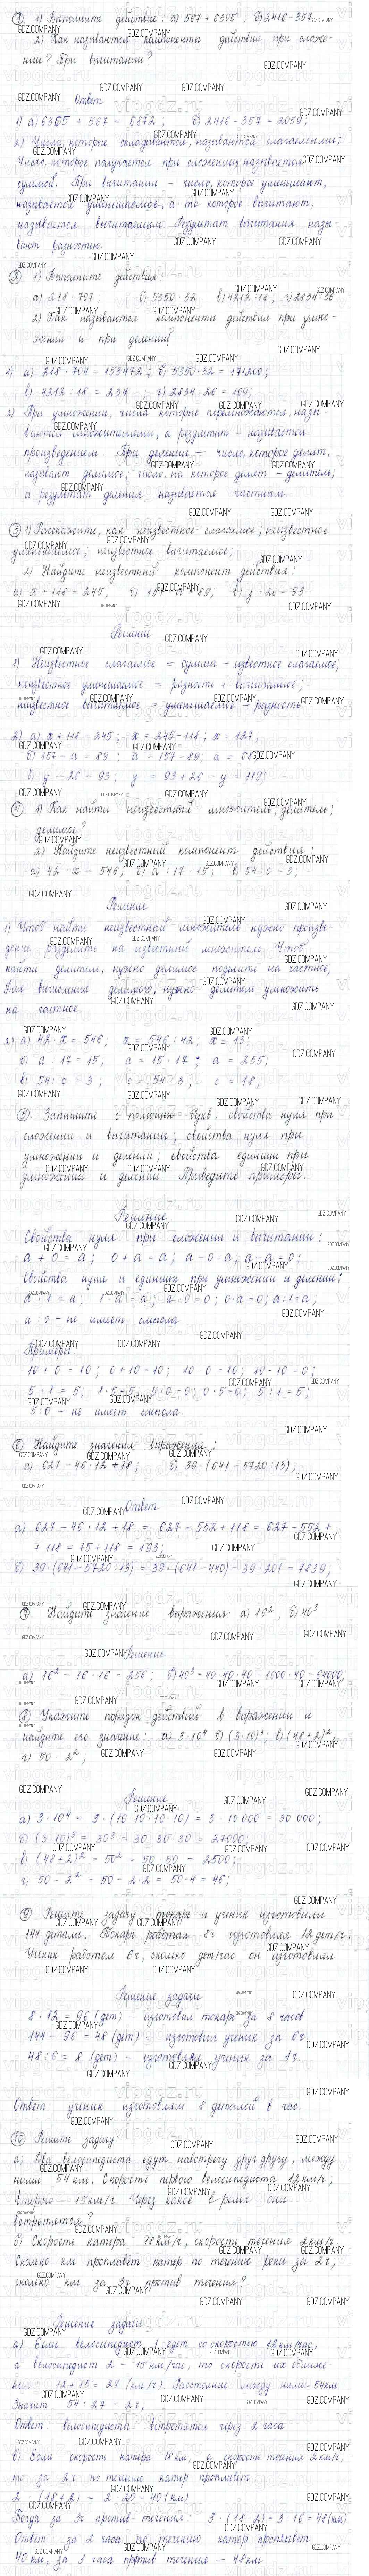 1) Выполните действие: а) 567 + 6305; б) 2416 - 357
2) Как называются компоненты действия при сложе-
нии? При вычитании?
Ответ
1) а) 6305 + 567 = 6872; б) 2416 - 357 = 2059;
2) Числа, которые складываются, называются слагаемыми;
Число, которое получается при сложении, называется
суммой. При вычитании - число, которое уменьшают,
называется уменьшаемое, а то которое вычитают,
называется вычитаемым. Результат вычитания назы-
вают разностью.
② 1) Выполните действия:
а) 218 · 704; б) 5350 · 32 в) 4212 : 18; г) 2834 : 26
2) Как называются компоненты действия при умно-
жении и при делении?
1) а) 218 · 704 = 153472; б) 5350 · 32 = 171200;
в) 4212 : 18 = 234; г) 2834 : 26 = 109;
2) При умножении, числа которые перемножаются, назы-
ваются множителями, а результат - называется
произведением. При делении - число, которое делят,
называют делимое; число, на которое делят - делитель;
а результат деления называется частным.
③ 1) Расскажите, как неизвестное слагаемое; неизвестное
уменьшаемое; неизвестное вычитаемое;
2) Найдите неизвестный компонент действия:
а) x + 118 = 245; б) 157 - а = 89; в) y - 26 = 93
Решение
1) Неизвестное слагаемое = сумма - известное слагаемое;
неизвестное уменьшаемое = разность + вычитаемое;
неизвестное вычитаемое = уменьшаемое - разность
2) а) x + 118 = 245; x = 245 - 118; x = 127;
б) 157 - а = 89; а = 157 - 89; а = 68;
в) y - 26 = 93; y = 93 + 26 = y = 119;
④. 1) Как найти неизвестный множитель; делитель;
делимое?
2) Найдите неизвестный компонент действия:
а) 42 · x = 546; б) а : 17 = 15; в) 54 : с = 3;
Решение
1) Чтоб найти неизвестный множитель нужно произве-
дение разделить на известный множитель. Чтоб
найти делитель, нужно делимое поделить на частное;
Для вычисления делимого, нужно делитель умножить
на частное.
2) а) 42 · x = 546; x = 546 : 42; x = 13;
б) а : 17 = 15; а = 15 · 17; а = 255;
в) 54 : с = 3; с = 54 : 3; с = 18;
⑤. Запишите с помощью букв: свойства нуля при
сложении и вычитании; свойства нуля при
умножении и делении; свойства единицы при
умножении и делении. Приведите примеры.
Решение
Свойства нуля при сложении и вычитании:
а + 0 = а; 0 + а = а; а - 0 = а; а - а = 0;
Свойства нуля и единицы при умножении и делении:
а · 1 = а; 1 · а = а; а · 0 = 0; 0 · а = 0; а : 1 = а;
а : 0 - не имеет смысла
Примеры:
10 + 0 = 10; 0 + 10 = 10; 10 - 0 = 10; 10 - 10 = 0;
5 · 1 = 5; 1 · 5 = 5; 5 · 0 = 0; 0 · 5 = 0; 5 : 1 = 5;
5 : 0 - не имеет смысла.
⑥ Найдите значения выражения:
а) 627 - 46 · 12 + 18; б) 39 · (641 - 5720 : 13);
Ответ
а) 627 - 46 · 12 + 18 = 627 - 552 + 118 = 627 - 552 +
+ 118 = 75 + 118 = 193;
б) 39 · (641 - 5720 : 13) = 39 · (641 - 440) = 39 · 201 = 7839;
⑦ Найдите значение выражения а) 16²; б) 40³
Решение
а) 16² = 16 · 16 = 256; б) 40³ = 40 · 40 · 40 = 1600 · 40 = 64000;
⑧ Укажите порядок действий в выражении и
найдите его значение: а) 3 · 10⁴ б) (3 · 10)³; в) (48 + 2)²
г) 50 - 2²;
Решение
а) 3 · 10⁴ = 3 · (10 · 10 · 10 · 10) = 3 · 10 000 = 30 000;
б) (3 · 10)³ = 30³ = 30 · 30 · 30 = 27000;
в) (48 + 2)² = 50² = 50 · 50 = 2500;
г) 50 - 2² = 50 - 2 · 2 = 50 - 4 = 46;
⑨ Решите задачу: токарь и ученик изготовили
144 детали. Токарь работал 8ч изготовляя 12 дет/ч.
Ученик работал 6ч, сколько дет/час он изготовлял
Решение задачи
8 · 12 = 96 (дет) - изготовил токарь за 8 часов
144 - 96 = 48 (дет) - изготовил ученик за 6ч
48 : 6 = 8 (дет) - изготовлял ученик за 1ч.
Ответ ученик изготовлял 8 деталей в час.
⑩ Решите задачу:
а) Два велосипедиста едут навстречу друг другу, между
ними 54 км. Скорость первого велосипедиста 12 км/ч;
второго - 15 км/ч Через какое время они
встретятся?
б) Скорость катера 18 км/ч, скорость течения 2 км/ч
Сколько км проплывёт катер по течению реки за 2ч;
сколько км за 3ч против течения?
Решение задачи
а) Если велосипедист 1 едет со скоростью 12 км/час,
а велосипедист 2 - 15 км/час, то скорость их сближе-
ния 12 + 15 = 27 (км/ч). Расстояние между ними 54км
Значит 54 : 27 = 2ч;
Ответ велосипедисты встретятся через 2 часа
б) Если скорость катера 18 км, а скорость течения 2 км/ч,
то за 2ч по течению катер проплывет:
2 · (18 + 2) = 2 · 20 = 40 (км)
Тогда за 3ч против течения: 3 · (18 - 2) = 3 · 16 = 48 (км)
Ответ за 2 часа по течению катер проплывет
40 км, за 3 часа против течения - 48 км.